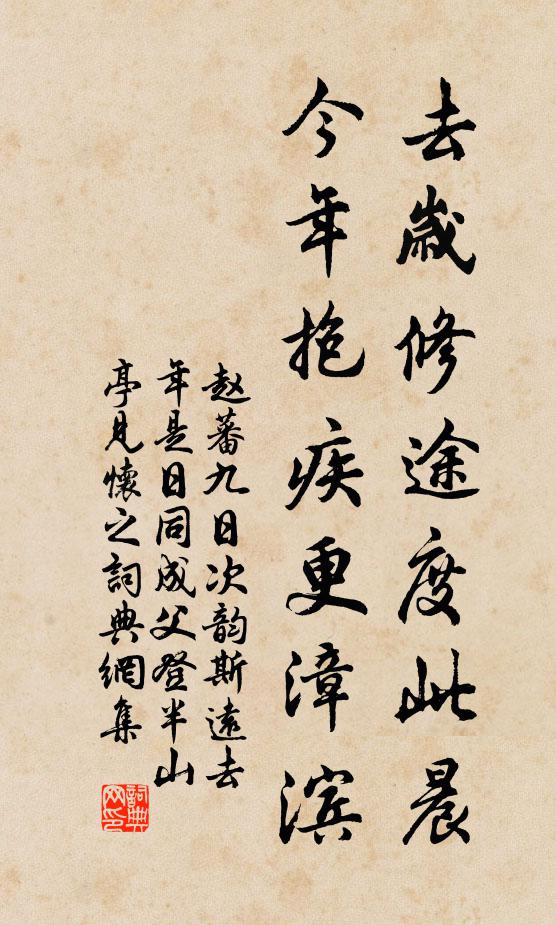 去歲修途度此晨
今年抱疾更漳滨
赵蕃九日次韵斯遠去
年是日同成父登半山
亭見懷之詞典網集
詞典
网印